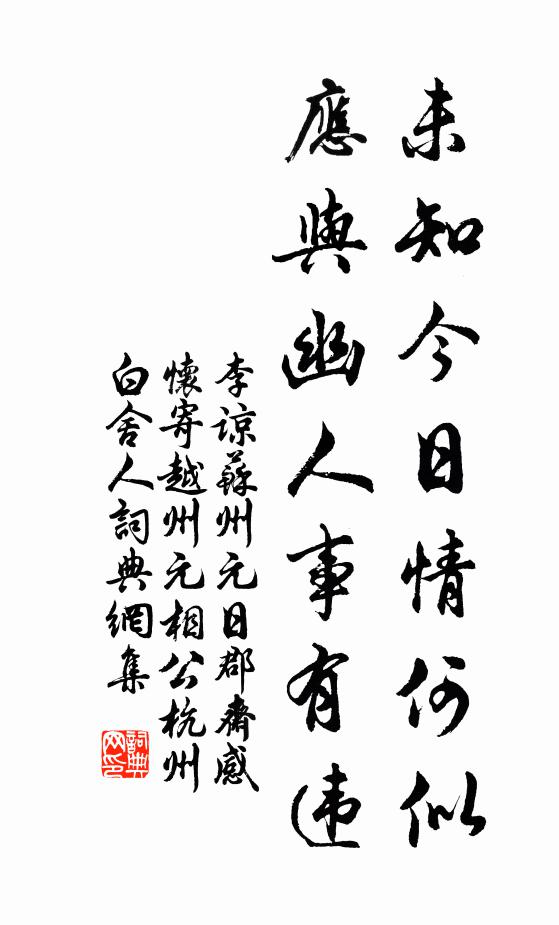 未知今日情何似
應與幽人事有違
李諒蘇州元日郡齋感
懷寄越州元相公杭州
白舍人詞典網集
詞典
网印